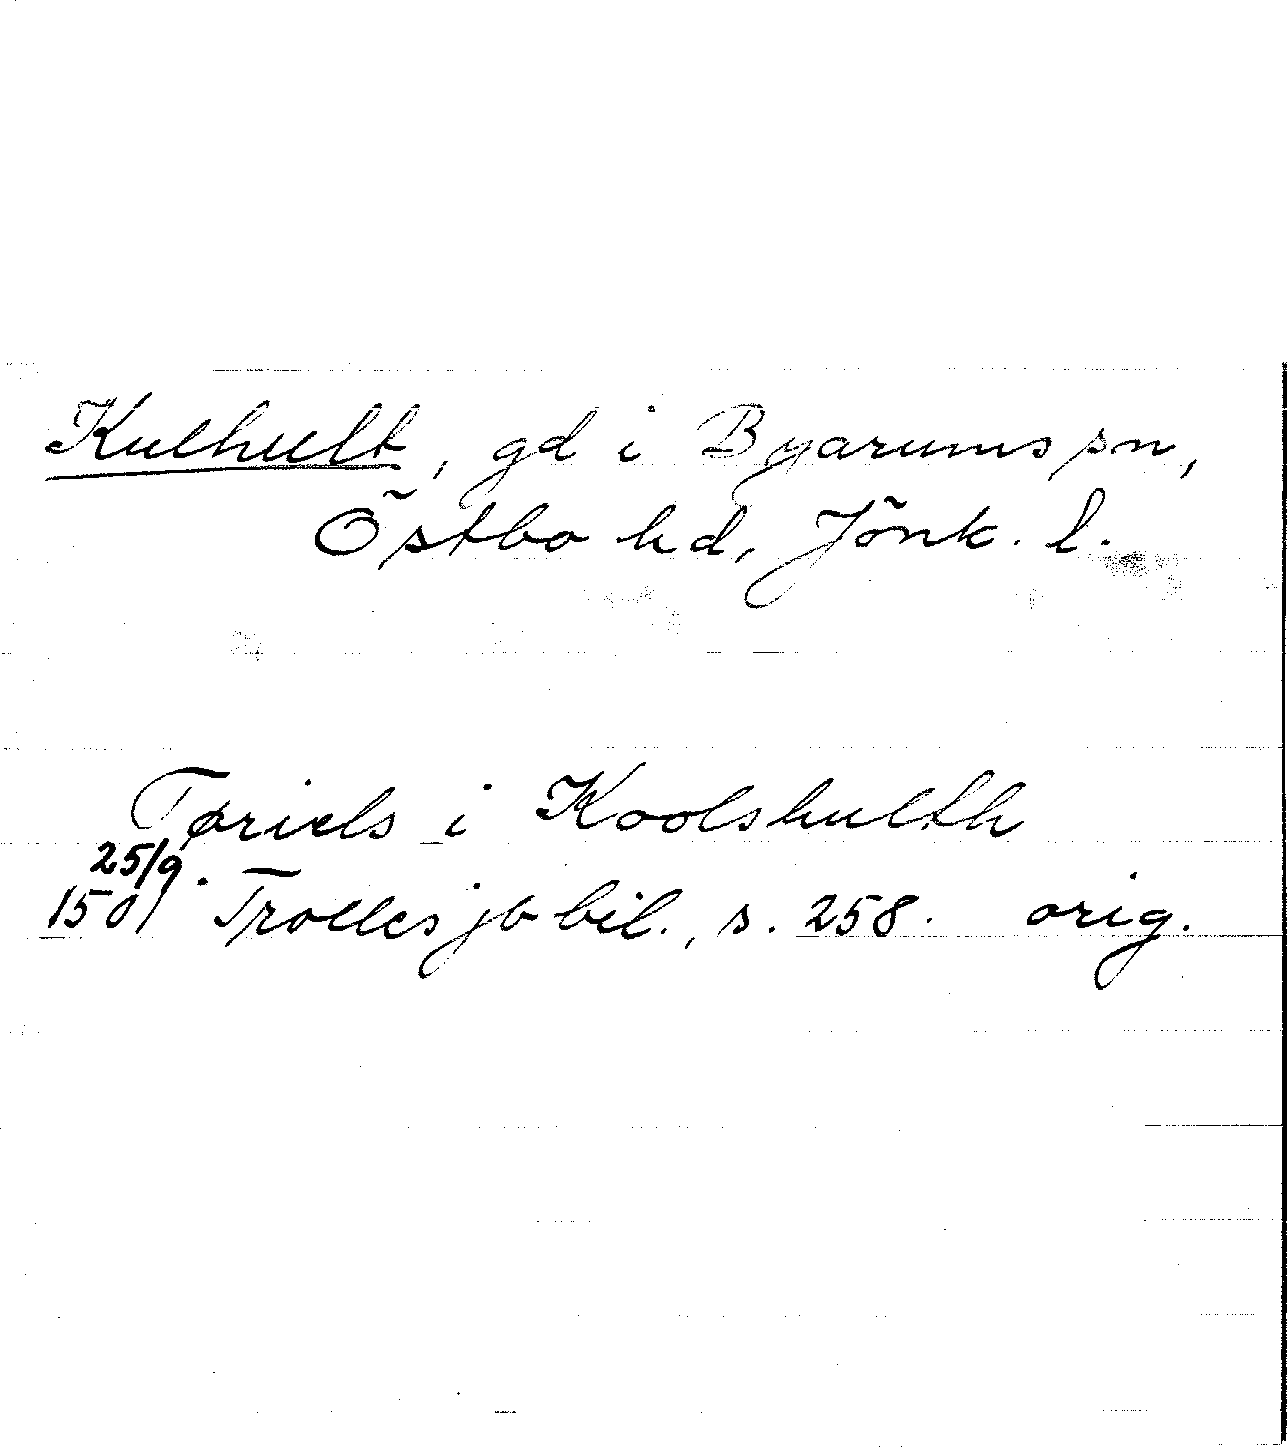 Kulhult, gd i Byarums sn,
Östbo hd, Jönk. l.
Tøriels i Koolshulth
25/9
1501. Trolles jb bil., s. 258. orig.